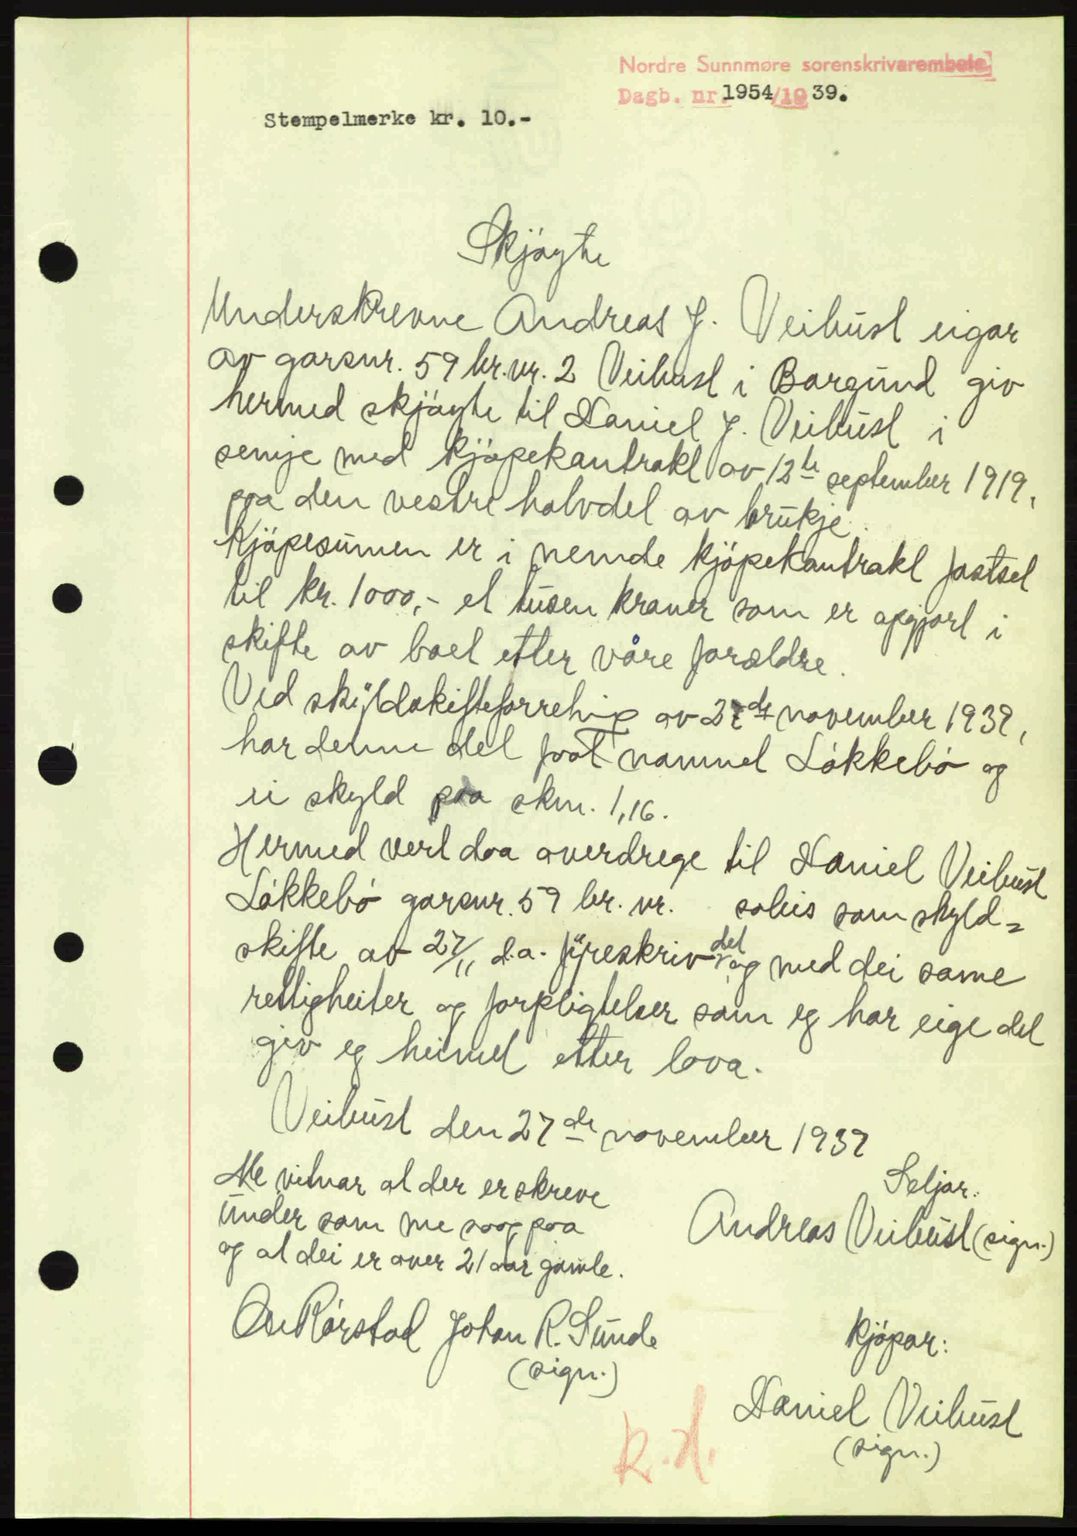 Nordre Sunnmøre sorenskrivarembete
Dagb. nr. 1954/1939.
Stempelmerke kr. 10.-
Skjøyte
Underskrevne Andreas J. Veibust eigar
av garsnr. 59 br.nr. 2 Veibust i Borgund giv
hermed skjøyte til Daniel J. Veibust i
semje med kjøpekontrakt av 12te september 1919,
paa den vestre halvdel av brukje.
Kjøpesumen er i nemde kjøpekontrakt fastset
til kr. 1000,- et tusen kroner som er opgjort i
skifte av boet etter våre forældre.
Ved skyldskifteforretning av november 1939,
har denne del faat namnet Løkkebø og
ei skyld paa skm. 1,16.
Hermed vert daa overdrege til Daniel Veibust
Løkkebø garsnr. 59 br. nr. soleis som skyld=
skifte av 27/11 d.a. føreskriv det og med dei same
rettigheiter og forpligtelser som eg har eige det
giv eg heimel etter lova.
Veibust den 27de november 1939
Me vitnar at der er skreve
under som me saag paa
og at dei er over 21 aar gamle.
Seljar:
Andreas Veibust (sign.)
Rørstad Johan R. Sunde
(sign.)
Kjøpar:
Daniel Veibust
(sign.)
R.d.